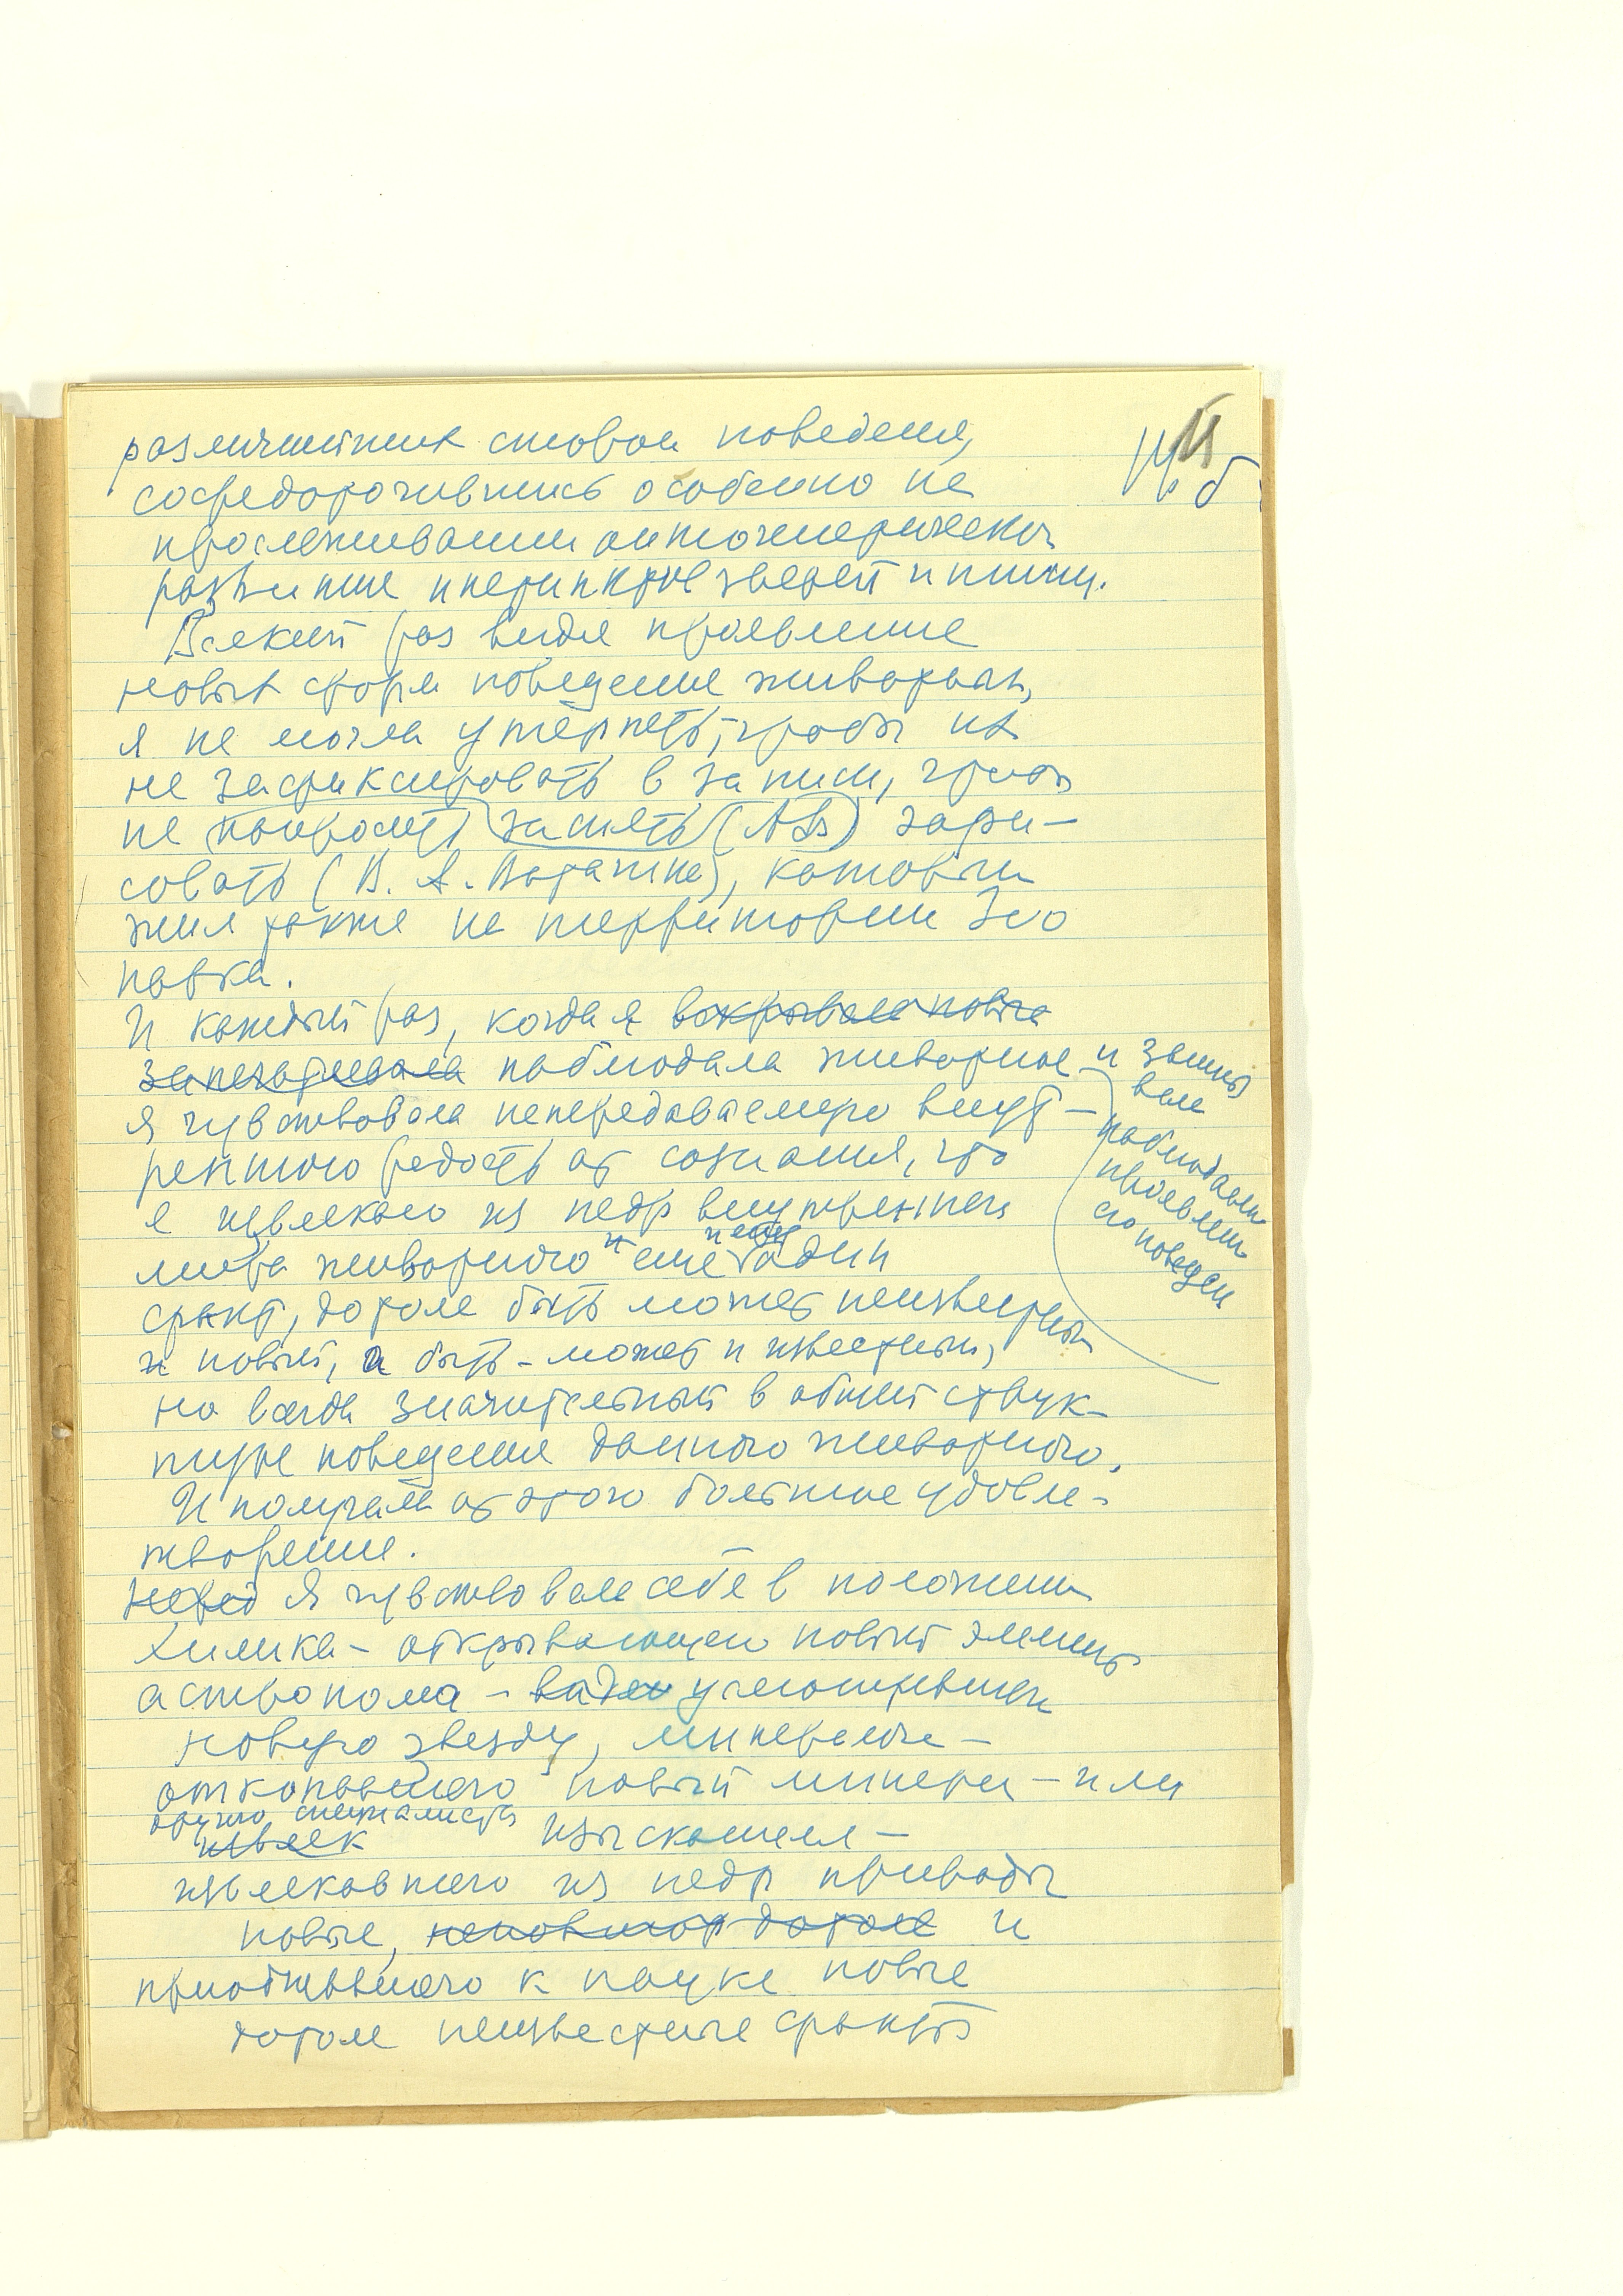 различнейших сторон поведения,
сосредоточившись особенно на
прослеживании онтогенетическом
развитие инстинктов зверей и птиц.
Всякий раз видя проявление
новых форм поведения животных,
я не могла утерпеть, чтобы их
не зафиксировать в записи, чтобы
не попросить заснять (АФ) зари-
совать (В. А. Ватагина), который
жил также на территории Зоо
парка.
И каждый раз, когда я вскрывала новые
запечатлевала наблюдала животное и записы
вала
наблюдаем
проявлен
его поведен
я чувствовала непередаваемую внут-
реннюю радость от сознания, что
я извлекаю из недр внутреннего
мира животного и еще один
факт, дотоле быть может неизвестный
и новый, а быть-может и известный,
но всегда значительный в общей струк-
туре поведения данного животного.
И получала от этого большое удовле-
творение.
Я чувствовала себя в положении
химика - открывающего новый элемент
астронома - усмотревшего
новую звезду, минеролога -
откопавшего новый минерал - или
другого специалиста
извлек изыскателя -
извлекавшего из недр природы
новые, дотоле и
приобщавшего к науке новые
дотоле неизвестные факты